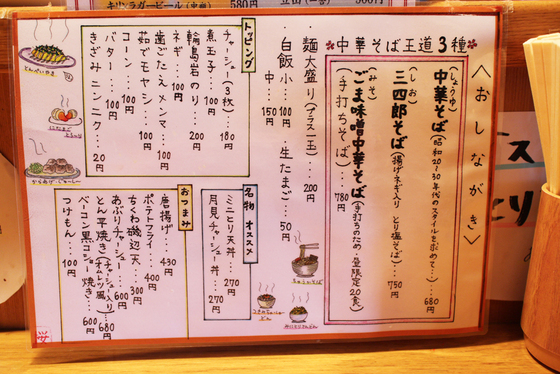 キリンラガービール(中瓶) 580円
〈おしながき〉
中華そば王道3種
(しょうゆ)
中華そば(昭和20〜30年代のスタイルを求めて…)…680円
(しお)
三四郎そば(揚げネギ入り とり塩そば)…750円
(みそ)
ごま味噌中華そば(手打ちのため一日量限定20食)
(手打ちそば)…780円
麺大盛り(プラス一玉)…200円
白飯 小…100円 生たまご…50円
中…150円
トッピング
チャーシュー(3枚)…180円
煮玉子…100円
輪島岩のり…200円
ネギ…100円
歯ごたえメンマ…100円
茹でモヤシ…100円
コーン…100円
バター…100円
きざみニンニク…20円
名物オススメ
ミニとり天丼…270円
月見チャーシュー丼…270円
おつまみ
唐揚げ…430円
ポテトフライ…400円
ちくわ磯辺天…300円
あぶりチャーシュー…600円
とん平焼き(チャーシュー入りオムレツ風)…680円
ベーコン黒コショー焼き…600円
つけもん…100円
とんぺいやき
にたまごとろ〜り
からあげ じゅ〜し〜
ちゅうかそば